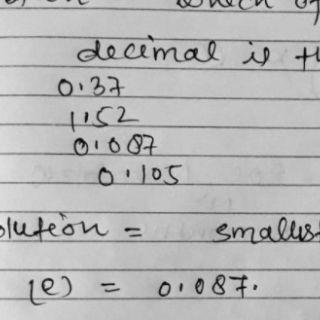 which of
decimal is th
0.37
1.52
0.087
0.105
olution = smallest
(e) = 0.087.